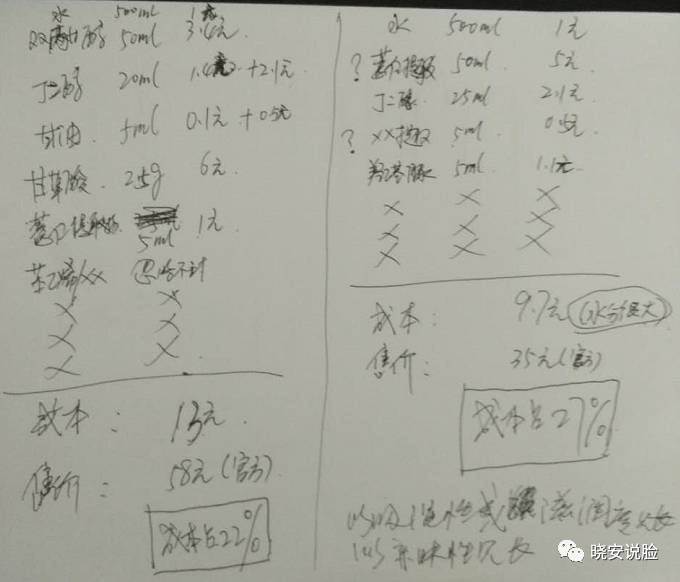 水 500ml 1元
双丙甘醇 50ml 3.4元
丁二醇 20ml 1.4元 +2.1元
甘油 5ml 0.1元 +0.5元
甘草酸 2.5g 6元
薏仁提取物 5ml 1元
苯乙烯/xx 忽略不计
X X
X X
X X
成本: 13元
售价: 58元(官方)
成本占22%
水 500ml 1元
? 薏仁提取 50ml 5元
丁二醇 25ml 2.1元
? XX提取 5ml 0.5元
羟乙基脲 5ml 1.1元
X X X
X X X
X X X
成本: 9.7元 (水分很大)
售价: 35元(官方)
成本占27%
滋润度
晓安说脸